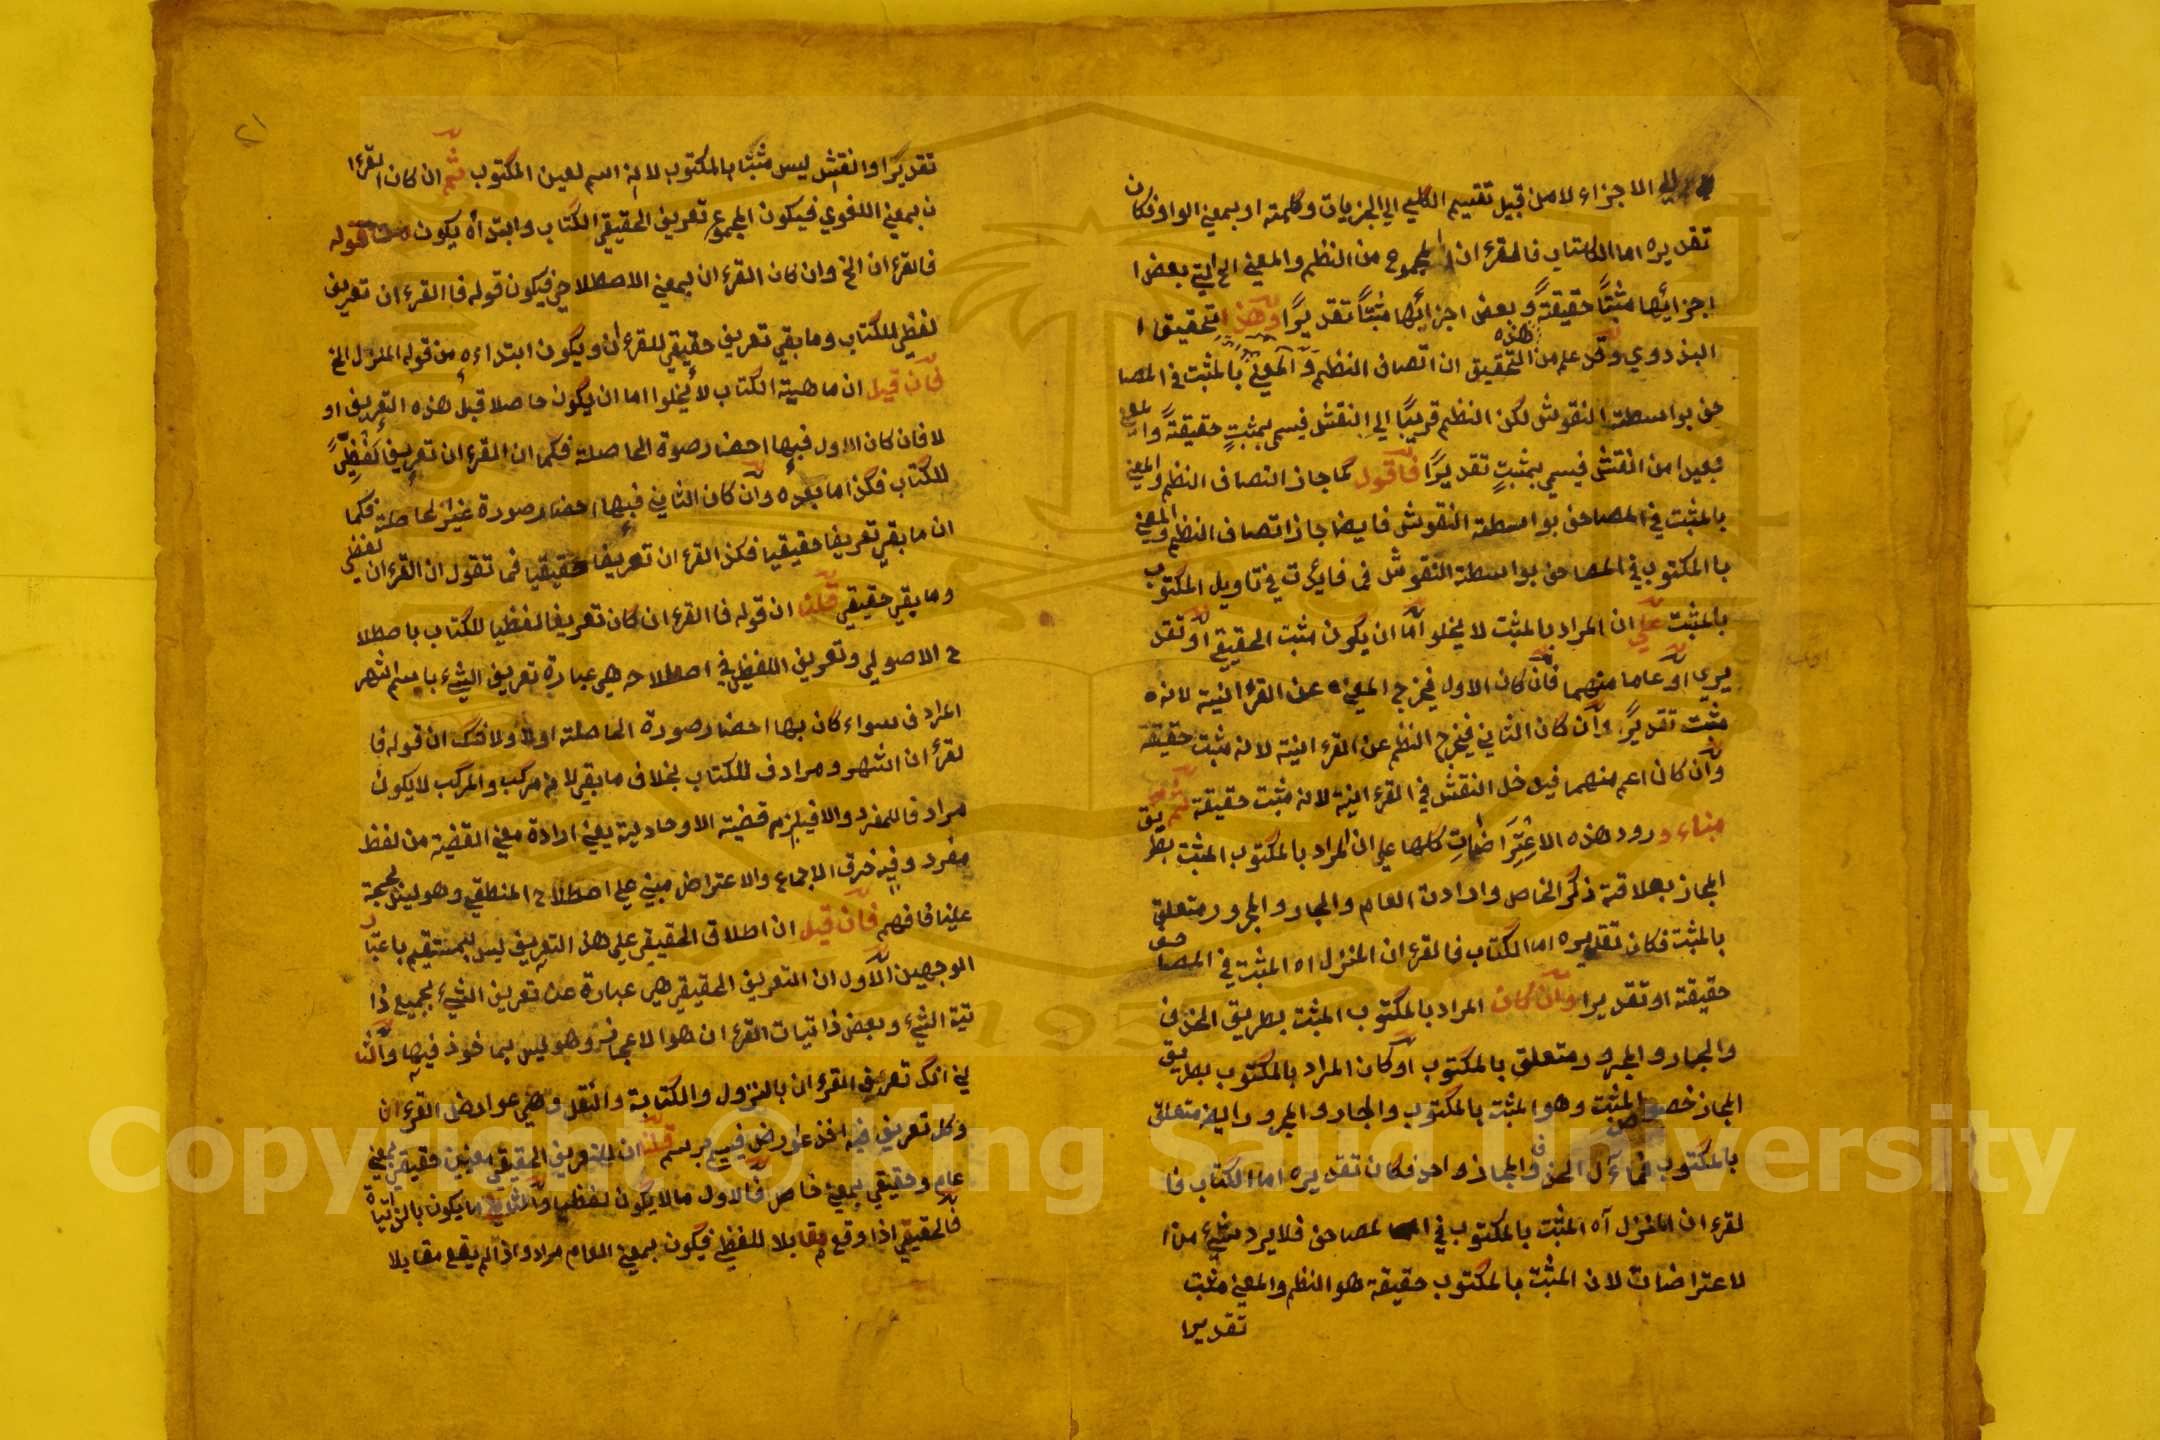 الي الاجزاء لا من قبيل تقسيم الكلي الي الجزيات وكلمة او بمعني الواو فكان
تقديره اما الكتاب فالقرءان المجموع من النظم والمعني الخ ليت بعض ا
اجزائها مثبتًا حقيقةً وبعض اجزائها مثبتًا تقديرًا وهذا تحقيق ا
البزدوي وقد علم من هذه التحقيق ان اتصاف النظم والمعني بالمثبت في المصا
حف بواسطة النقوش لكن النظم قريبًا الي النقش فيسمي بمثبتٍ حقيقةً والمعني
بعيدا من النقش فيسمي بمثبتٍ تقديرًا فاقول كما جاز اتصاف النظم والمعني
بالمثبت في المصاحف بواسطة النقوش فايضا جاز اتصاف النظم والمعني
باالمكتوب في المصاحف بواسطة النقوش فما فايدت في تاويل المكتوب
بالمثبت علي ان المراد بالمثبت لا يخلو اما ان يكون مثبت الحقيقي او تقد
يري او عاما منهما فان كان الاول فيخرج المعني عن القرءانية لانه
مثبت تقديرً وان كان الثاني فيخرج النظم عن القرءانية لانه مثبت حقيقة
وان كان اعم منهما فيدخل النقش في القرءانية لانه مثبت حقيقة
مبناء ورود هذه الاعتراضات كلها علي ان المراد بالمكتوب المثبت بطريق
المجاز بعلاقة ذكر الخاص وارادت العام والجار والمجرور متعلق
بالمثبت فكان تقديره اما الكتاب فالقرءان المنزل اه المثبت في المصاحف
حقيقة او تقديرا وان كان المراد بالمكتوب المثبت بطريق الحذف
والجار والمجرور متعلق بالمكتوب او كان المراد بالمكتوب بطريق
المجاز خصوص المثبت وهو المثبت بالمكتوب والجار والمجرور ايضا متعلق
بالمكتوب فمآل الحذف والمجاز واحد فكان تقديره اما الكتاب فا
لقرءان المنزل آه المثبت بالمكتوب في المصاحف فلا يرد شيء من ا
لاعتراضات لان المثبت بالمكتوب حقيقة هو النظم والمعني مثبت
تقديرا
٢١
تقديرًا والنقش ليس مثبتا بالمكتوب لانه اسم لعين المكتوب ثم ان كان القرءا
ن بمعني اللغوي فيكون المجموع تعريف الحقيقي الكتاب وابتداه يكون قوله
فالقرءان الخ وان كان القرءان بمعني الاصطلاحي فيكون قوله فا القرءان تعريف
لفظي للكتاب وما بقي تعريف حقيقي للقرءان ويكون ابتداءه من قوله المنزل الخ
فان قيل ان ماهية الكتاب لا يخلوا اما ان يكون حاصلا قبل هذه التعريف او
لا فان كان الاول فبها احضار صوة الحاصلة فكما ان القرءان تعريف لفظيً
للكتاب فكذا ما بعده وان كان الثاني فبها احضار صورة غير الحاصلة فكما
ان ما بقي تعريفا حقيقيا فكذ القرءان تعريفا حقيقيا فما تقول ان القرءان لفظي
وما بقي حقيقي قلنا ان قوله فا القرءان كان تعريفا لفظيا للكتاب باصطلا
ح الاصولي وتعريف اللفظي في اصطلاحه هي عبارة تعريف الشيء باسم اشهر
المرادف سواء كان بها احضار صورة الحاصلة اولا ولا شك ان قوله فا
لقرءان اشهر ومرادف للكتاب بخلاف ما بقي لانه مركب والمركب لا يكون
مرادفا للمفرد والا فيلزم قضية الاوحادية يعني ارادة معني القضية من لفظ
مفرد وفيه خرق الاجماع والاعتراض مبني علي اصطلاح المنطقي وهو ليس بحجة
علينا فافهم فان قيل ان اطلاق الحقيقي علي هذا التعريف ليس بمستقيم باعتبار
الوجهين الاول ان التعريف الحقيقي هي عبارة عن تعريف الشيء بجميع ذا
تية الشيء وبعض ذاتيات القرءان هو الاعجاز وهو ليس بماخوذ فيها والثا
ني انك تعريف القرءان بالنزول والكتابة والنقل وهي عوارض القرءان
وكل تعريف فيه اخذ عوارض فيسمي برسم قلنا ان للتعريف الحقيقي معنيين حقيقي بمعني
عام وحقيقي بمعني خاص فالاول ما لا يكون لفظيا والثاني ما يكون بالذاتيات
فالحقيقي اذا وقع مقابلا للفظي فيكون بمعني العام مراد واذا لم يقع مقابلا
Copyright © King Saud University
1957